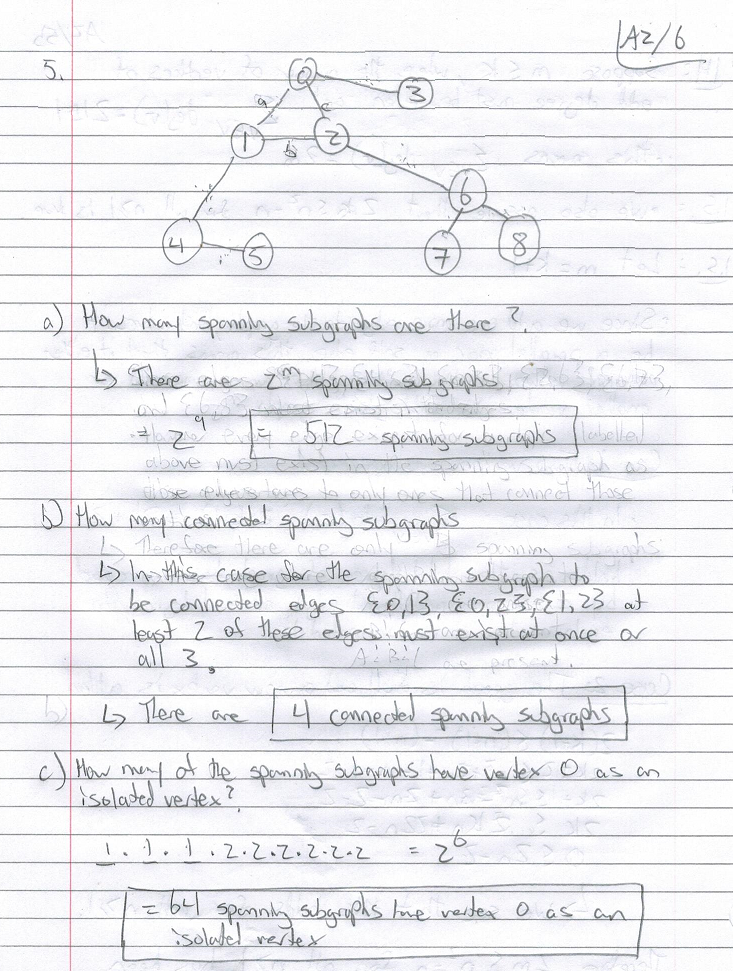 A2/6
5.
0
3
a
c
1
b
2
6
4
5
7
8
a) How many spanning subgraphs are there?
↳ There are 2^m spanning subgraphs
= 2^9 = 512 spanning subgraphs
b) How many connected spanning subgraphs
↳ In this case for the spanning subgraph to
be connected edges {0,1}, {0,2}, {1,2} at
least 2 of these edges must exist at once or
all 3.
↳ There are 4 connected spanning subgraphs
c) How many of the spanning subgraphs have vertex 0 as an
isolated vertex?
1 · 1 · 1 · 2 · 2 · 2 · 2 · 2 · 2 = 2^6
= 64 spanning subgraphs have vertex 0 as an
isolated vertex